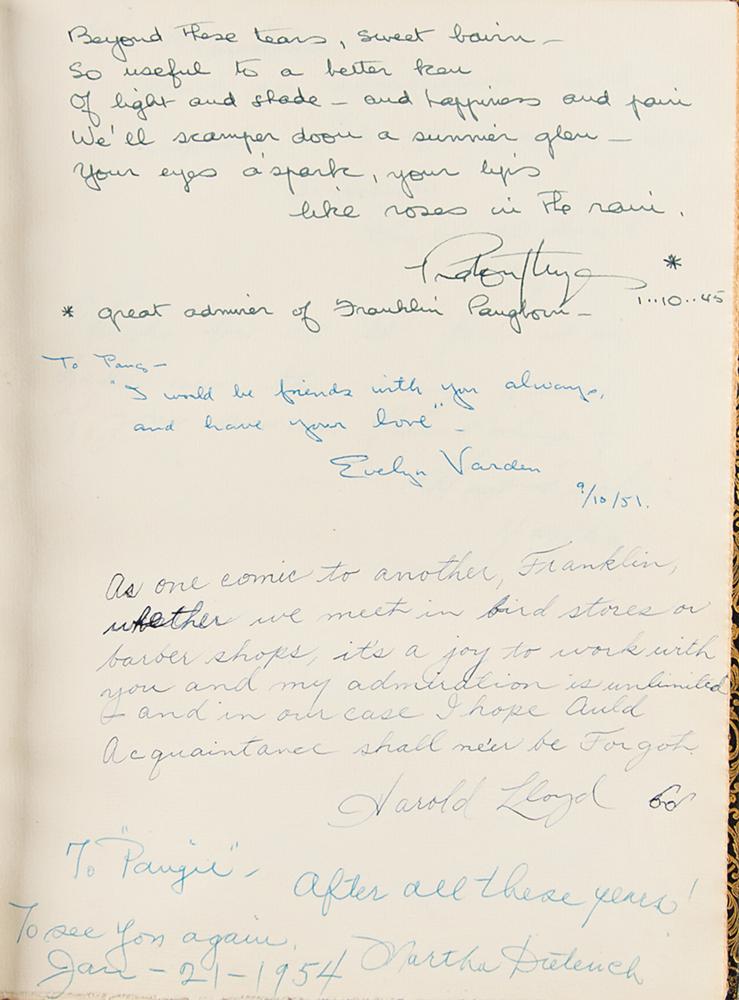 Beyond these tears, sweet bairn —
So useful to a better ken
Of light and shade — and happiness and pain
We'll scamper doon a summer glen —
Your eyes a'spark, your lips
like roses in the rain.
*
1..10..45
* great admirer of Franklin Pangborn —
To Pang —
"I would be friends with you always,
and have your love" —
Evelyn Varden
9/10/51.
As one comic to another, Franklin,
whether we meet in bird stores or
barber shops, it's a joy to work with
you and my admiration is unlimited
— and in our case I hope Auld
Acquaintance shall ne'er be Forgot.
Harold Lloyd
To "Pangie" —
After all these years!
To see you again.
Jan - 21 - 1954
Martha